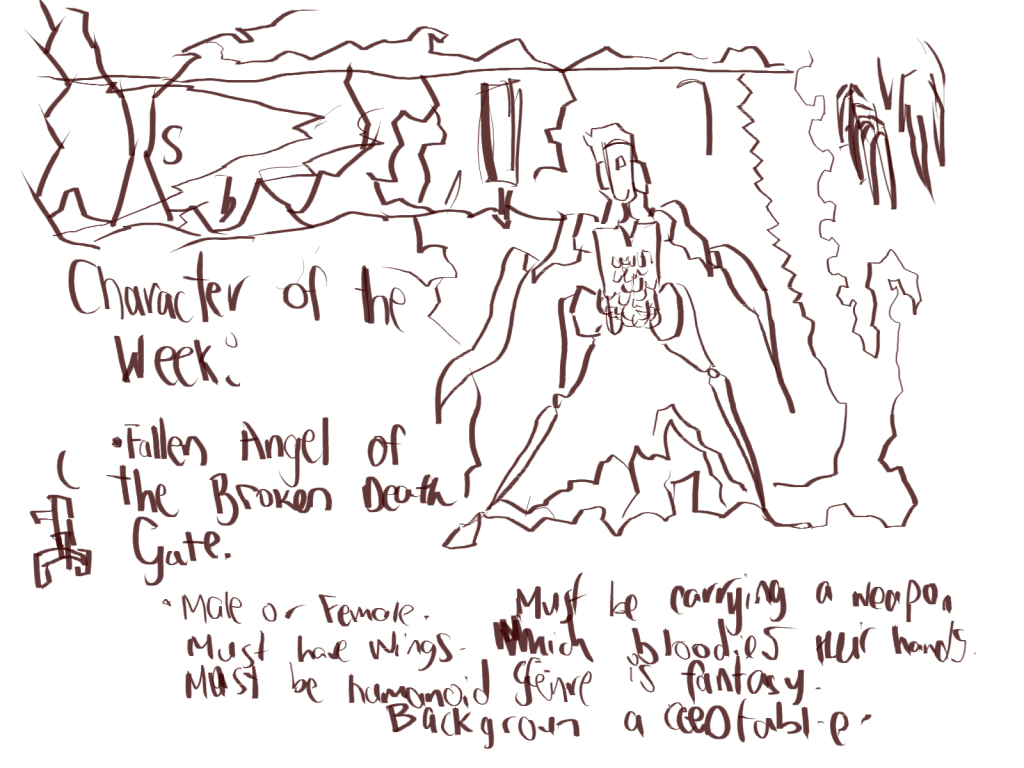 S
b
Character of the
Week:
•Fallen Angel of
the Broken Death
Gate.
• Male or Female.
Must have Wings.
Must be humanoid
Must be carrying a weapon
Which bloodies their hands.
Genre is fantasy.
Backgroun acceotable.